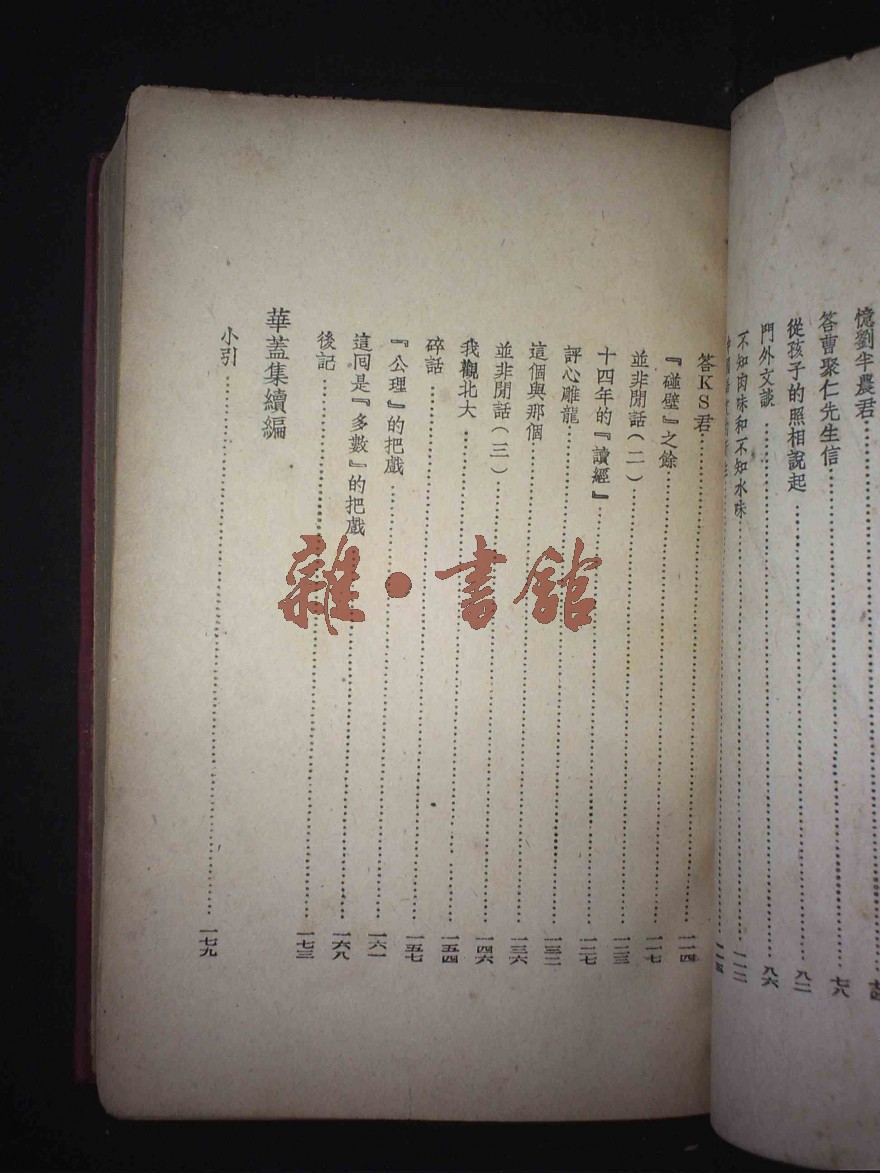 憶劉半農君
答曹聚仁先生信……七八
從孩子的照相說起……八二
門外文談……八六
不知肉味和不知水味……一一二
答KS君……一一四
『碰壁』之餘……一一七
並非閒話（二）……一二三
十四年的『讀經』……一二七
評心雕龍……一三二
這個與那個……一三六
並非閒話（三）……一四六
我觀北大……一五四
碎話……一五七
『公理』的把戲……一六一
這囘是『多數』的把戲……一六八
後記……一七三
華蓋集續編
小引……一七九
雜·書館